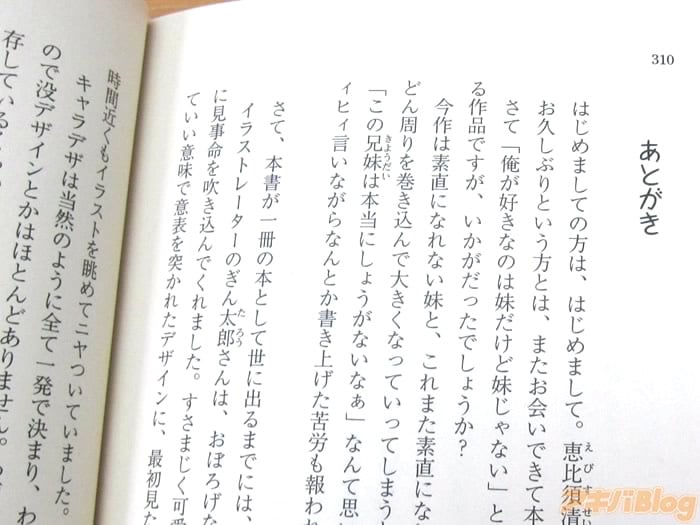 310
あとがき
はじめましての方は、はじめまして。恵比須清
えびすせい
お久しぶりという方とは、またお会いできて本
さて「俺が好きなのは妹だけど妹じゃない」と
る作品ですが、いかがだったでしょうか?
今作は素直になれない妹と、これまた素直にな
どん周りを巻き込んで大きくなっていってしまう
「この兄妹は本当にしょうがないなぁ」なんて思い
きょうだい
ィヒィ言いながらなんとか書き上げた苦労も報われ
さて、本書が一冊の本として世に出るまでには、
イラストレーターのぎん太郎さんは、おぼろげな
たろう
に見事命を吹き込んでくれました。すさまじく可愛
ていい意味で意表を突かれたデザインに、最初見た
時間近くもイラストを眺めてニヤついていました。
キャラデザは当然のように全て一発で決まり、わ
ので没デザインとかはほとんどありません。
存している
キバBlog